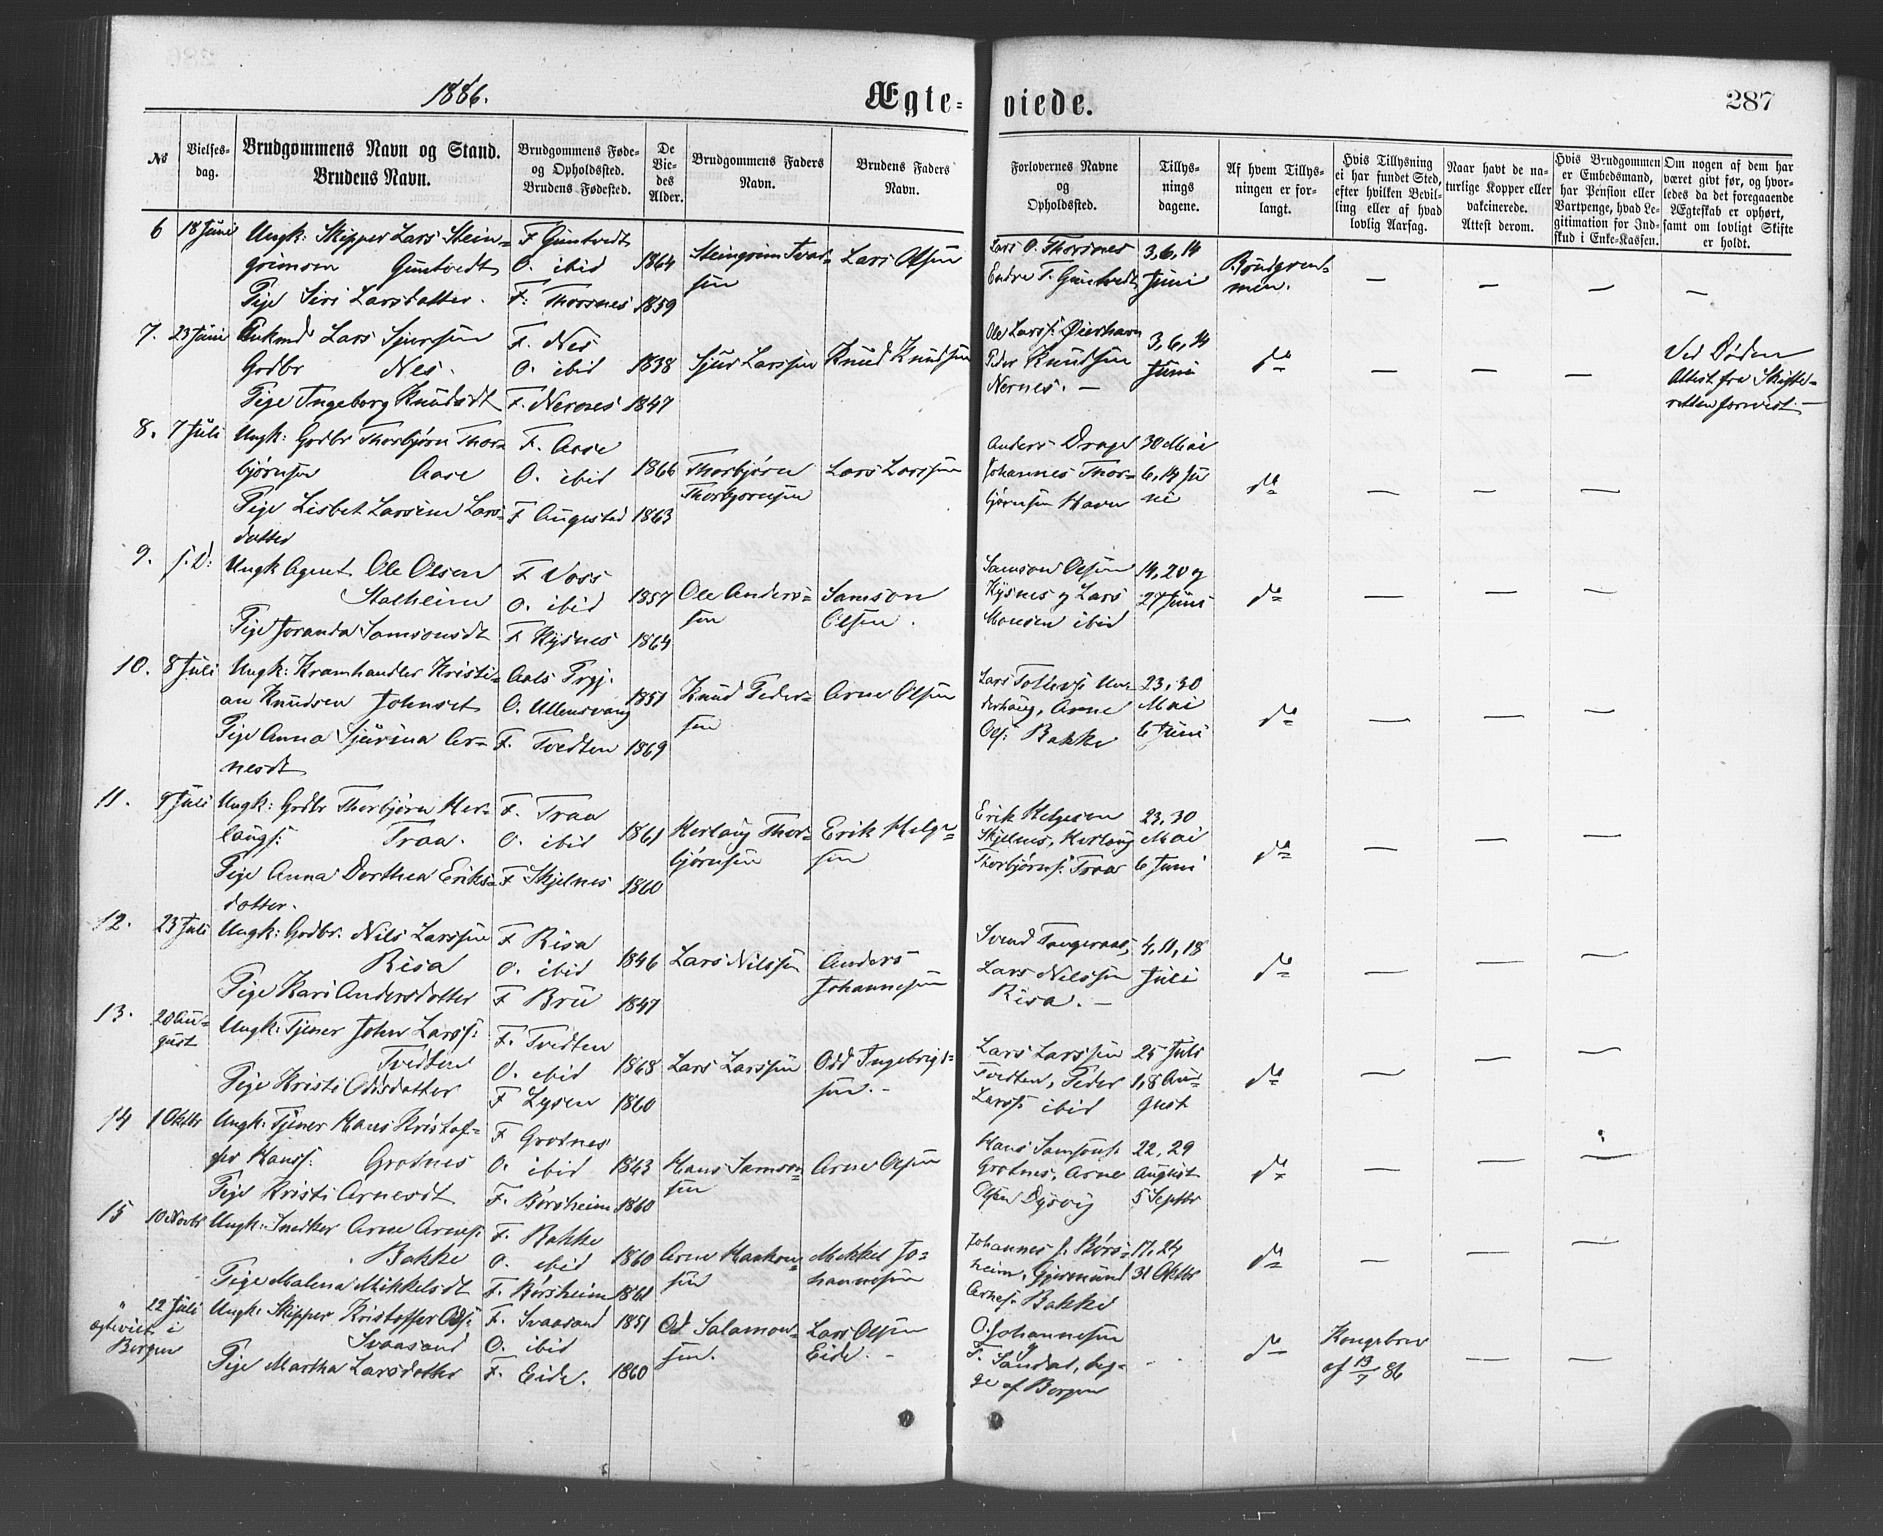 1886.
Ægte-
viede.
287
No
Vielses-
dag.
Brudgommens Navn og Stand.
Brudens Navn.
Brudgommens Føde-
og Opholdssted.
Brudens Fødested.
De
Vie-
des
Alder.
Brudgommens Faders
Navn.
Brudens Faders
Navn.
Forlovernes Navne
og
Opholdssted.
Tillys-
nings
dagene.
Af hvem Tillys-
ningen er for-
langt.
Hvis Tillysning
ei har fundet Sted,
efter hvilken Bevil-
ling eller af hvad
lovlig Aarsag.
Naar havt de na-
turlige Kopper eller
vakcinerede.
Attest derom.
Hvis Brudgommen
er Embedsmand,
har Pension eller
Vartpenge, hvad Le-
gitimation for Ind-
skud i Enke-Kassen.
Om nogen af dem har
været givt før, og hvor-
ledes da det foregaaende
Ægteskab er ophørt,
samt om lovligt Skifte
er holdt.
6 18 Juni Ungk: Skipper Lars Stein-
grimsen Guntvedt
Pige Siri Larsdatter.
F. Guntvedt
O. ibid
F: Thorsnes
1864
1859
Steingrim Ivar-
sen
Lars Olsen
Lars O. Thorsnes
Endre T. Guntvedt
3, 6, 14
Juni
Brudgom-
men.
— — — —
7. 23 Juni Enkmd Lars Sjursen
Grdbr Nes.
Pige Ingeborg Knudsdt
F. Nes
O. ibid
F. Nernes
1838
1847
Sjur Larssen
Knud Knudsen
Ole Larss. Øierhavn
Peder Knudsen
Nernes. —
3, 6, 14
Juni
do
— — —
Ved Døden
Attest fra Skifte-
retten forevist. —
8. 7 Juli Ungk: Grdbr Thorbjørn Thor-
bjørnsen Aase
Pige Lisbet Larsine Lars-
datter
F. Aase
O. ibid
F Augestad
1866
1863
Thorbjørn
Thorbjørnsen
Lars Larssen
Anders Drage
Johannes Thor-
bjørnsen Havn
30 Mai
6, 14 Ju
ni
do
— — —
9. s. D: Ungk Agent Ole Olsen
Stalheim
Pige Joranda Samsonsdt
F. Voss
O. ibid
F Kysnes
1857
1864
Ole Anders-
sen
Samson
Olsen.
Samson Olsen
Kysnes og Lars
Monsen ibid
14, 20 og
27 Juni
do
— — —
10. 8 Juli Ungk: Kramhandler Kristi-
an Knudsen Johnset
Pige Anna Sjurina Ar-
nesdt
Aals Prgj.
O. Ullensvang
F. Tvedten
1851
1869
Knud Peder-
sen
Arne Olsen
Lars Tollevs. Un-
derhaug, Arne
Ols: Bakke
23, 30
Mai
6 Juni
do
— — —
11. 9 Juli Ungk: Grdbr Thorbjørn Her-
laugs: Traa.
Pige Anna Dorthea Eriks-
datter.
F. Traa
O. ibid
F Skjelnes
1861
1860
Herlaug Thor-
bjørnsen
Erik Helge-
sen
Erik Helgesen
Skjelnes, Herlaug
Thorbjørns. Traa
23, 30
Mai
6 Juni
do
— — —
12. 23 Juli Ungk: Grdbr. Nils Larssen
Risa
Pige Kari Andersdatter
F Risa
O. ibid
F Bru
1846
1847
Lars Nilssen
Anders
Johannesen
Svend Tangeraas,
Lars Nilssen
Risa. —
4, 11, 18
Juli
do
— — —
13. 20 Au-
gust
Ungk: Tjener John Larss:
Tvedten
Pige Kristi Oddsdatter
F. Tvedten
O. ibid
F Lysen
1868
1860
Lars Larssen
Odd Ingebrigt-
sen. -
Lars Larssen
Tvedten, Peder
Larss. ibid
25 Juli
1, 8 Au-
gust
do
— — —
14 1 Oktbr Ungk: Tjener Hans Kristof-
fer Hanss: Grotnes
Pige Kristi Arnesdt
F Grotnes
O. ibid
F. Børsheim
1863
1860
Hans Samson-
sen
Arne Olsen
Hans Samsons.
Grotnes, Arne
Olsen Dysvig
22, 29
August
5 Septbr
do
— — —
15 10 Novbr Ungk: Snedker Arne Arnes:
Bakke
Pige Malena Mikkelsdt
F. Bakke
O. ibid
F. Børsheim
1860
1861
Arne Haakon-
sen
Mikkel Jo-
hannesen
Johannes J. Børs-
heim, Gjermund
Arnes. Bakke
17, 24
31 Oktbr
do
— — —
" 22 Juli
ægteviet i
Bergen
Ungk: Skipper Kristoffer Ods:
Svaasand
Pige Martha Larsdatter
F. Svaasand
O. ibid
F. Eide.
1851
1860
Od Salamon-
sen.
Lars Olsen
Eide. -
O. Johannesen
og
F. Sandal, beg-
ge af Bergen
do
Kongebrev
af 13/7 86
— —